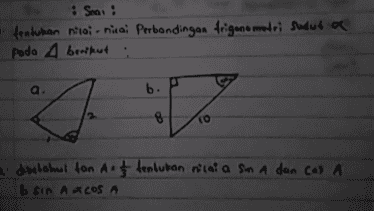 : Soal :
tentukan nilai-nilai Perbandingan trigonometri Sudut α
Pada Δ berikut :
a. b.
2
8 10
1
diketahui tan A = tentukan nilai a Sin A dan Cos A
b sin A × cos A